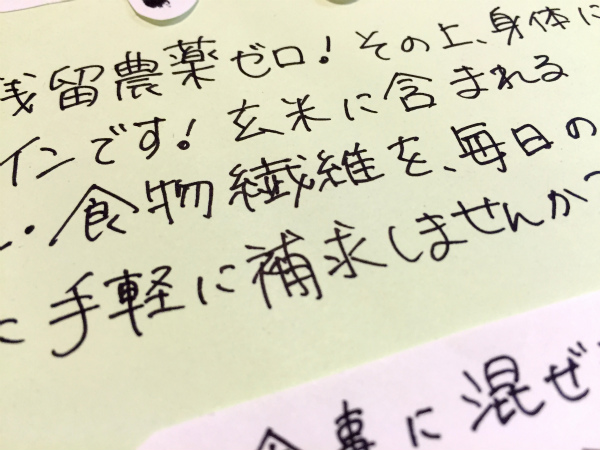 残留農薬ゼロ!その上、身体に
インです!玄米に含まれる
・食物繊維を、毎日の
に手軽に補求しませんか?
食事に混ぜ